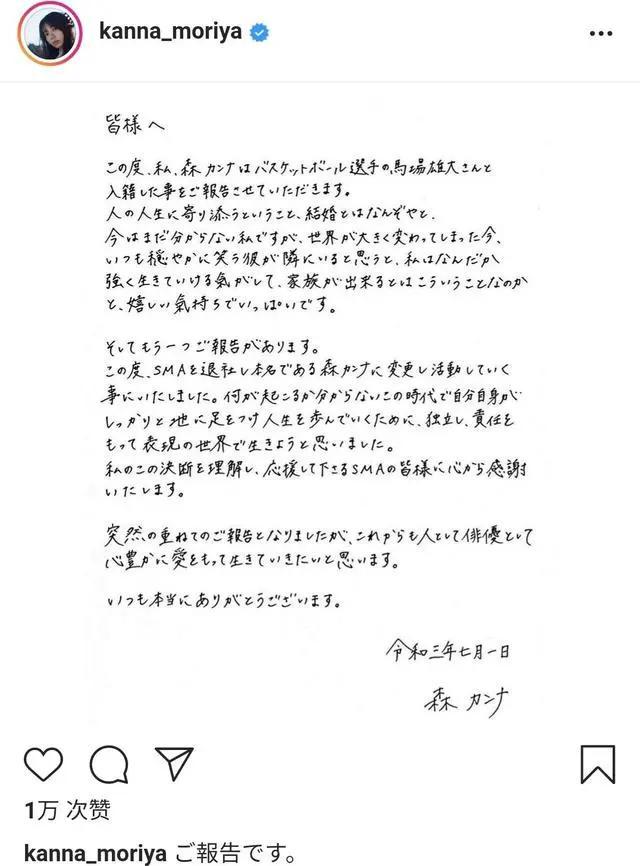 kanna_moriya
皆様へ
この度、私、森カンナはバスケットボール選手の馬場雄大さんと
入籍した事をご報告させていただきます。
人の人生に寄り添うということ、結婚とはなんぞやと、
今はまだ分からない私ですが、世界が大きく変わってしまった今、
いつも穏やかに笑う彼が隣にいると思うと、私はなんだか
強く生きていける気がして、家族が出来るとはこういうことなのか
と、嬉しい気持ちでいっぱいです。
そしてもう一つご報告があります。
この度、SMAを退社し本名である森カンナに変更し活動していく
事にいたしました。何が起こるか分からないこの時代で自分自身が
しっかりと地に足をつけ人生を歩んでいくために、独立し、責任を
もって表現の世界で生きようと思いました。
私のこの決断を理解し、応援して下さるSMAの皆様に心から感謝
いたします。
突然の重ねてのご報告となりましたが、これからも人として俳優として
心豊かに愛をもって生きていきたいと思います。
いつも本当にありがとうございます。
令和三年七月一日
森 カンナ
1万 次赞
kanna_moriya ご報告です。